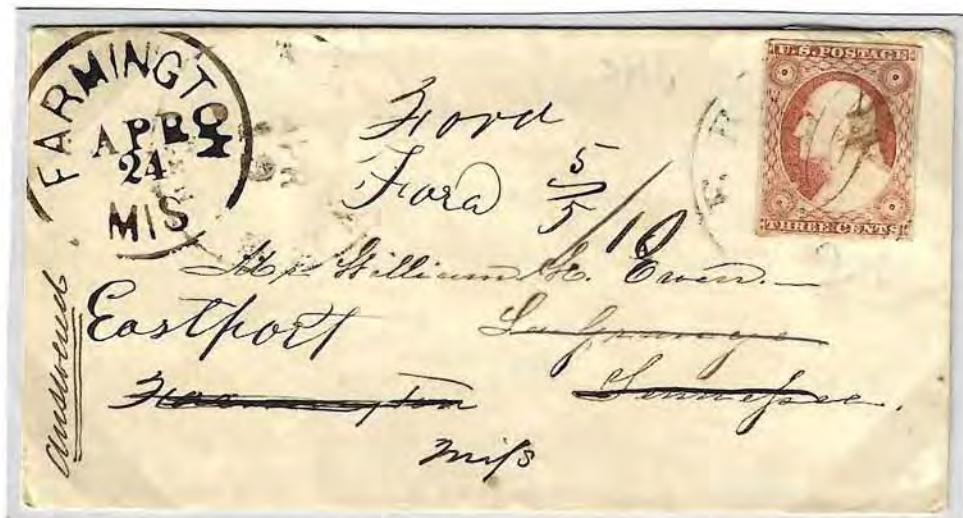 FARMINGTO
APR
24
MIS
U.S. POSTAGE
THREE CENTS
Ford
Ford 5
5/10
Mr William H. Ewen.
Eastport Lagrange
Farmington Tennessee.
Miss
answered